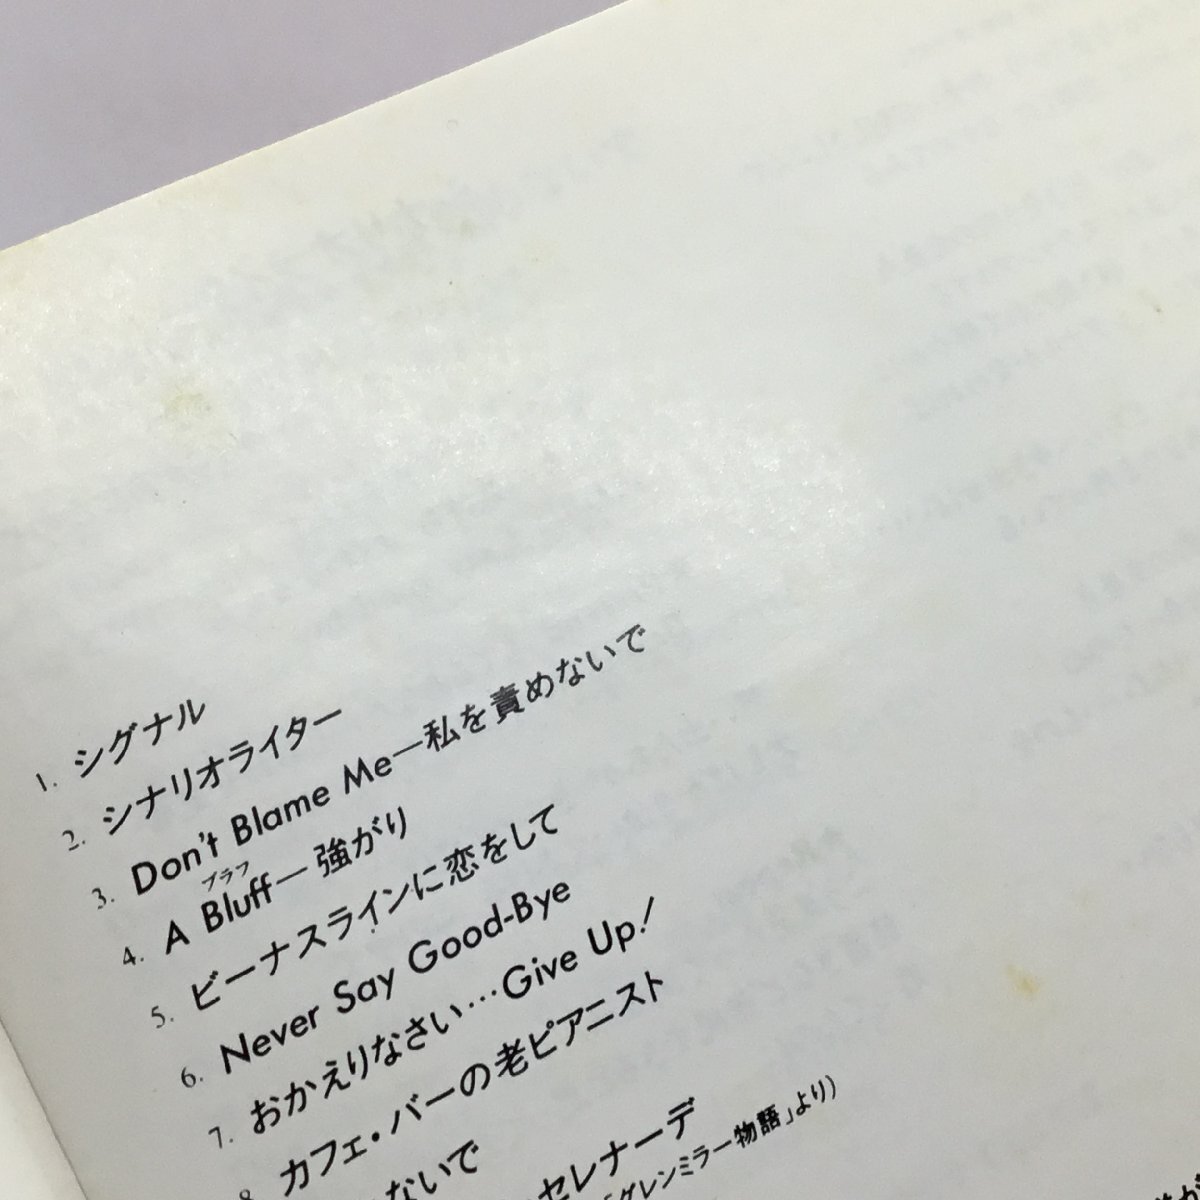 1. シグナル
2. シナリオライター
3. Don't Blame Me—私を責めないで
ブラフ
4. A Bluff—強がり
5. ビーナスラインに恋をして
6. Never Say Good-Bye
7. おかえりなさい…Give Up!
8. カフェ・バーの老ピアニスト
ないで
セレナーデ
「グレンミラー物語」より)